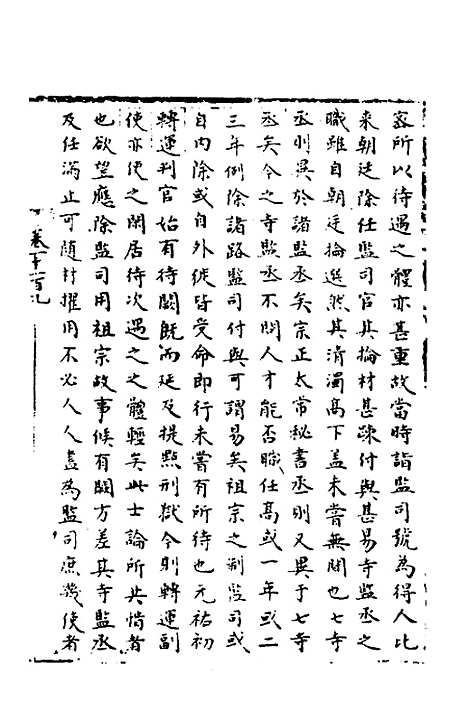 容所以待遇之體亦甚重故當時諸監司號為得人比
来朝廷除任監司官其掄材甚疎付與甚易寺監丞之
職雖自朝廷掄選然其清濁髙下盖未嘗無間也七寺
丞則異於諸監丞矣宗正太常秘書丞則又異于七寺
丞矣今之寺監丞不問人才能否職任髙或一年或二
三年例除諸路監司付與可謂易矣祖宗之制監司或
自内除或自外徙皆受命即行未嘗有所待也元祐初
轉運判官始有待闕既而延及提㸃刑獄今則轉運副
使亦使之閑居待次遇之之體輕矣此士論所共惜者
也欲望應除監司用祖宗故事候有闕方差其寺監丞
及任滿止可随材擢用不必人人盡為監司庶幾使者
卷一千一百九